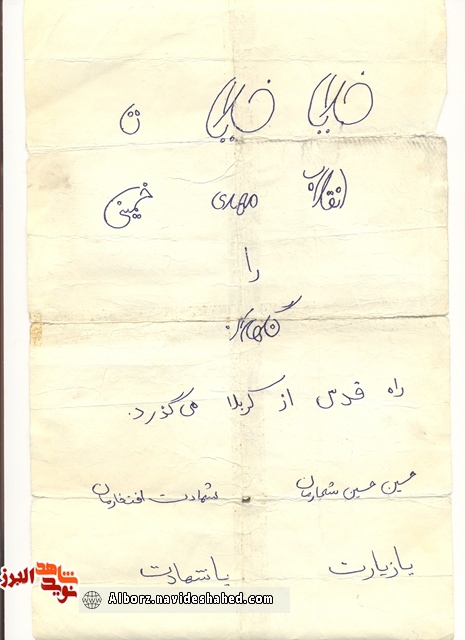 خدایا خدایا تا
انقلاب مهدی خمینی
را
نگهدار
راه قدس از کربلا می گذرد.
حسین حسین شعارمان شهادت افتخارمان
یا زیارت یا شهادت
نوید شاهد البرز
Alborz.navideshahed.com